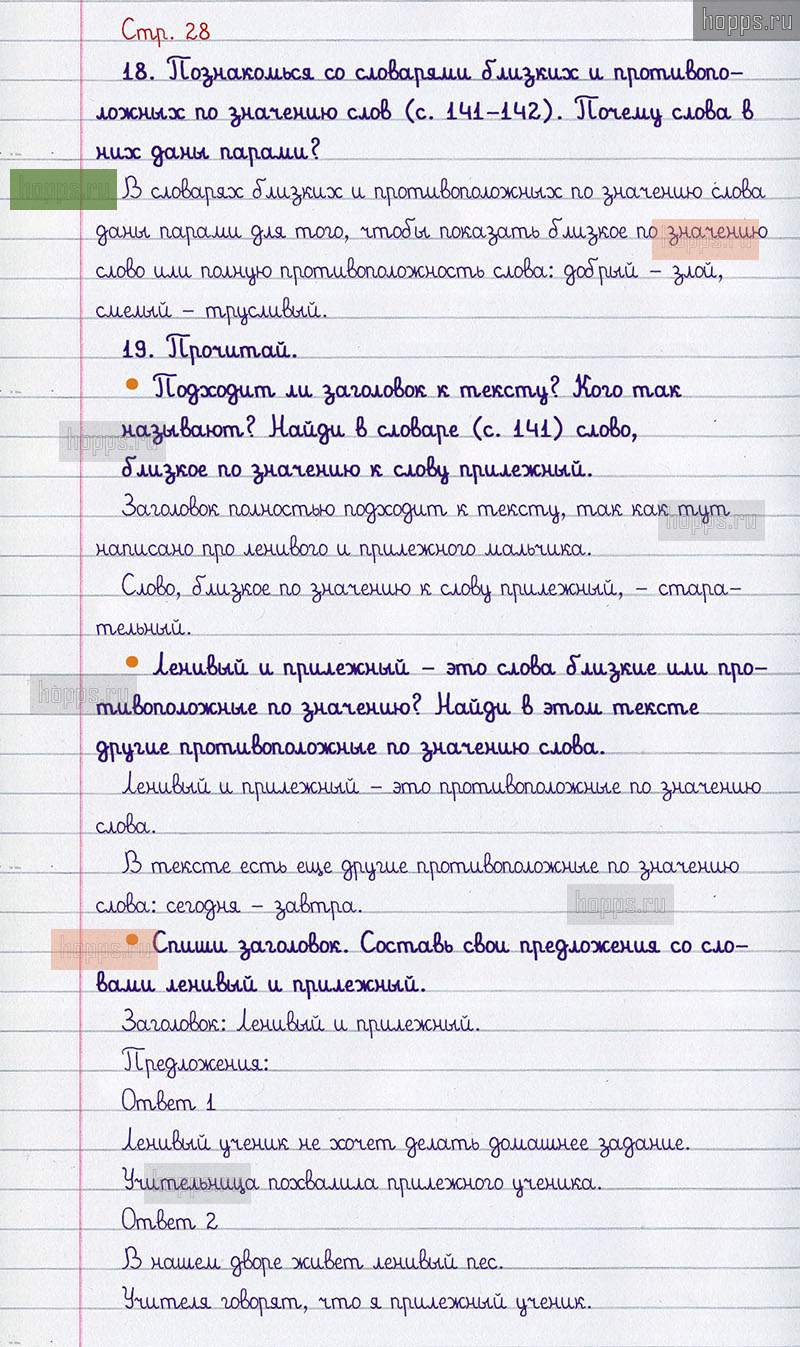 hopps.ru
Стр. 28
18. Познакомься со словарями близких и противопо-
ложных по значению слов (с. 141-142). Почему слова в
них даны парами?
hopps.ru
В словарях близких и противоположных по значению слова
даны парами для того, чтобы показать близкое по значению
hopps.ru
слово или полную противоположность слова: добрый – злой,
смелый – трусливый.
19. Прочитай.
• Подходит ли заголовок к тексту? Кого так
называют? Найди в словаре (с. 141) слово,
hopps.ru
близкое по значению к слову прилежный.
Заголовок полностью подходит к тексту, так как тут
hopps.ru
написано про ленивого и прилежного мальчика.
Слово, близкое по значению к слову прилежный, – стара-
тельный.
• Ленивый и прилежный – это слова близкие или про-
hopps.ru
тивоположные по значению? Найди в этом тексте
другие противоположные по значению слова.
Ленивый и прилежный – это противоположные по значению
слова.
В тексте есть еще другие противоположные по значению
слова: сегодня – завтра.
hopps.ru
• Спиши заголовок. Составь свои предложения со сло-
hopps.ru
вами ленивый и прилежный.
Заголовок: Ленивый и прилежный.
Предложения:
Ответ 1
Ленивый ученик не хочет делать домашнее задание.
Учительница похвалила прилежного ученика.
hopps.ru
Ответ 2
В нашем дворе живет ленивый пес.
Учителя говорят, что я прилежный ученик.